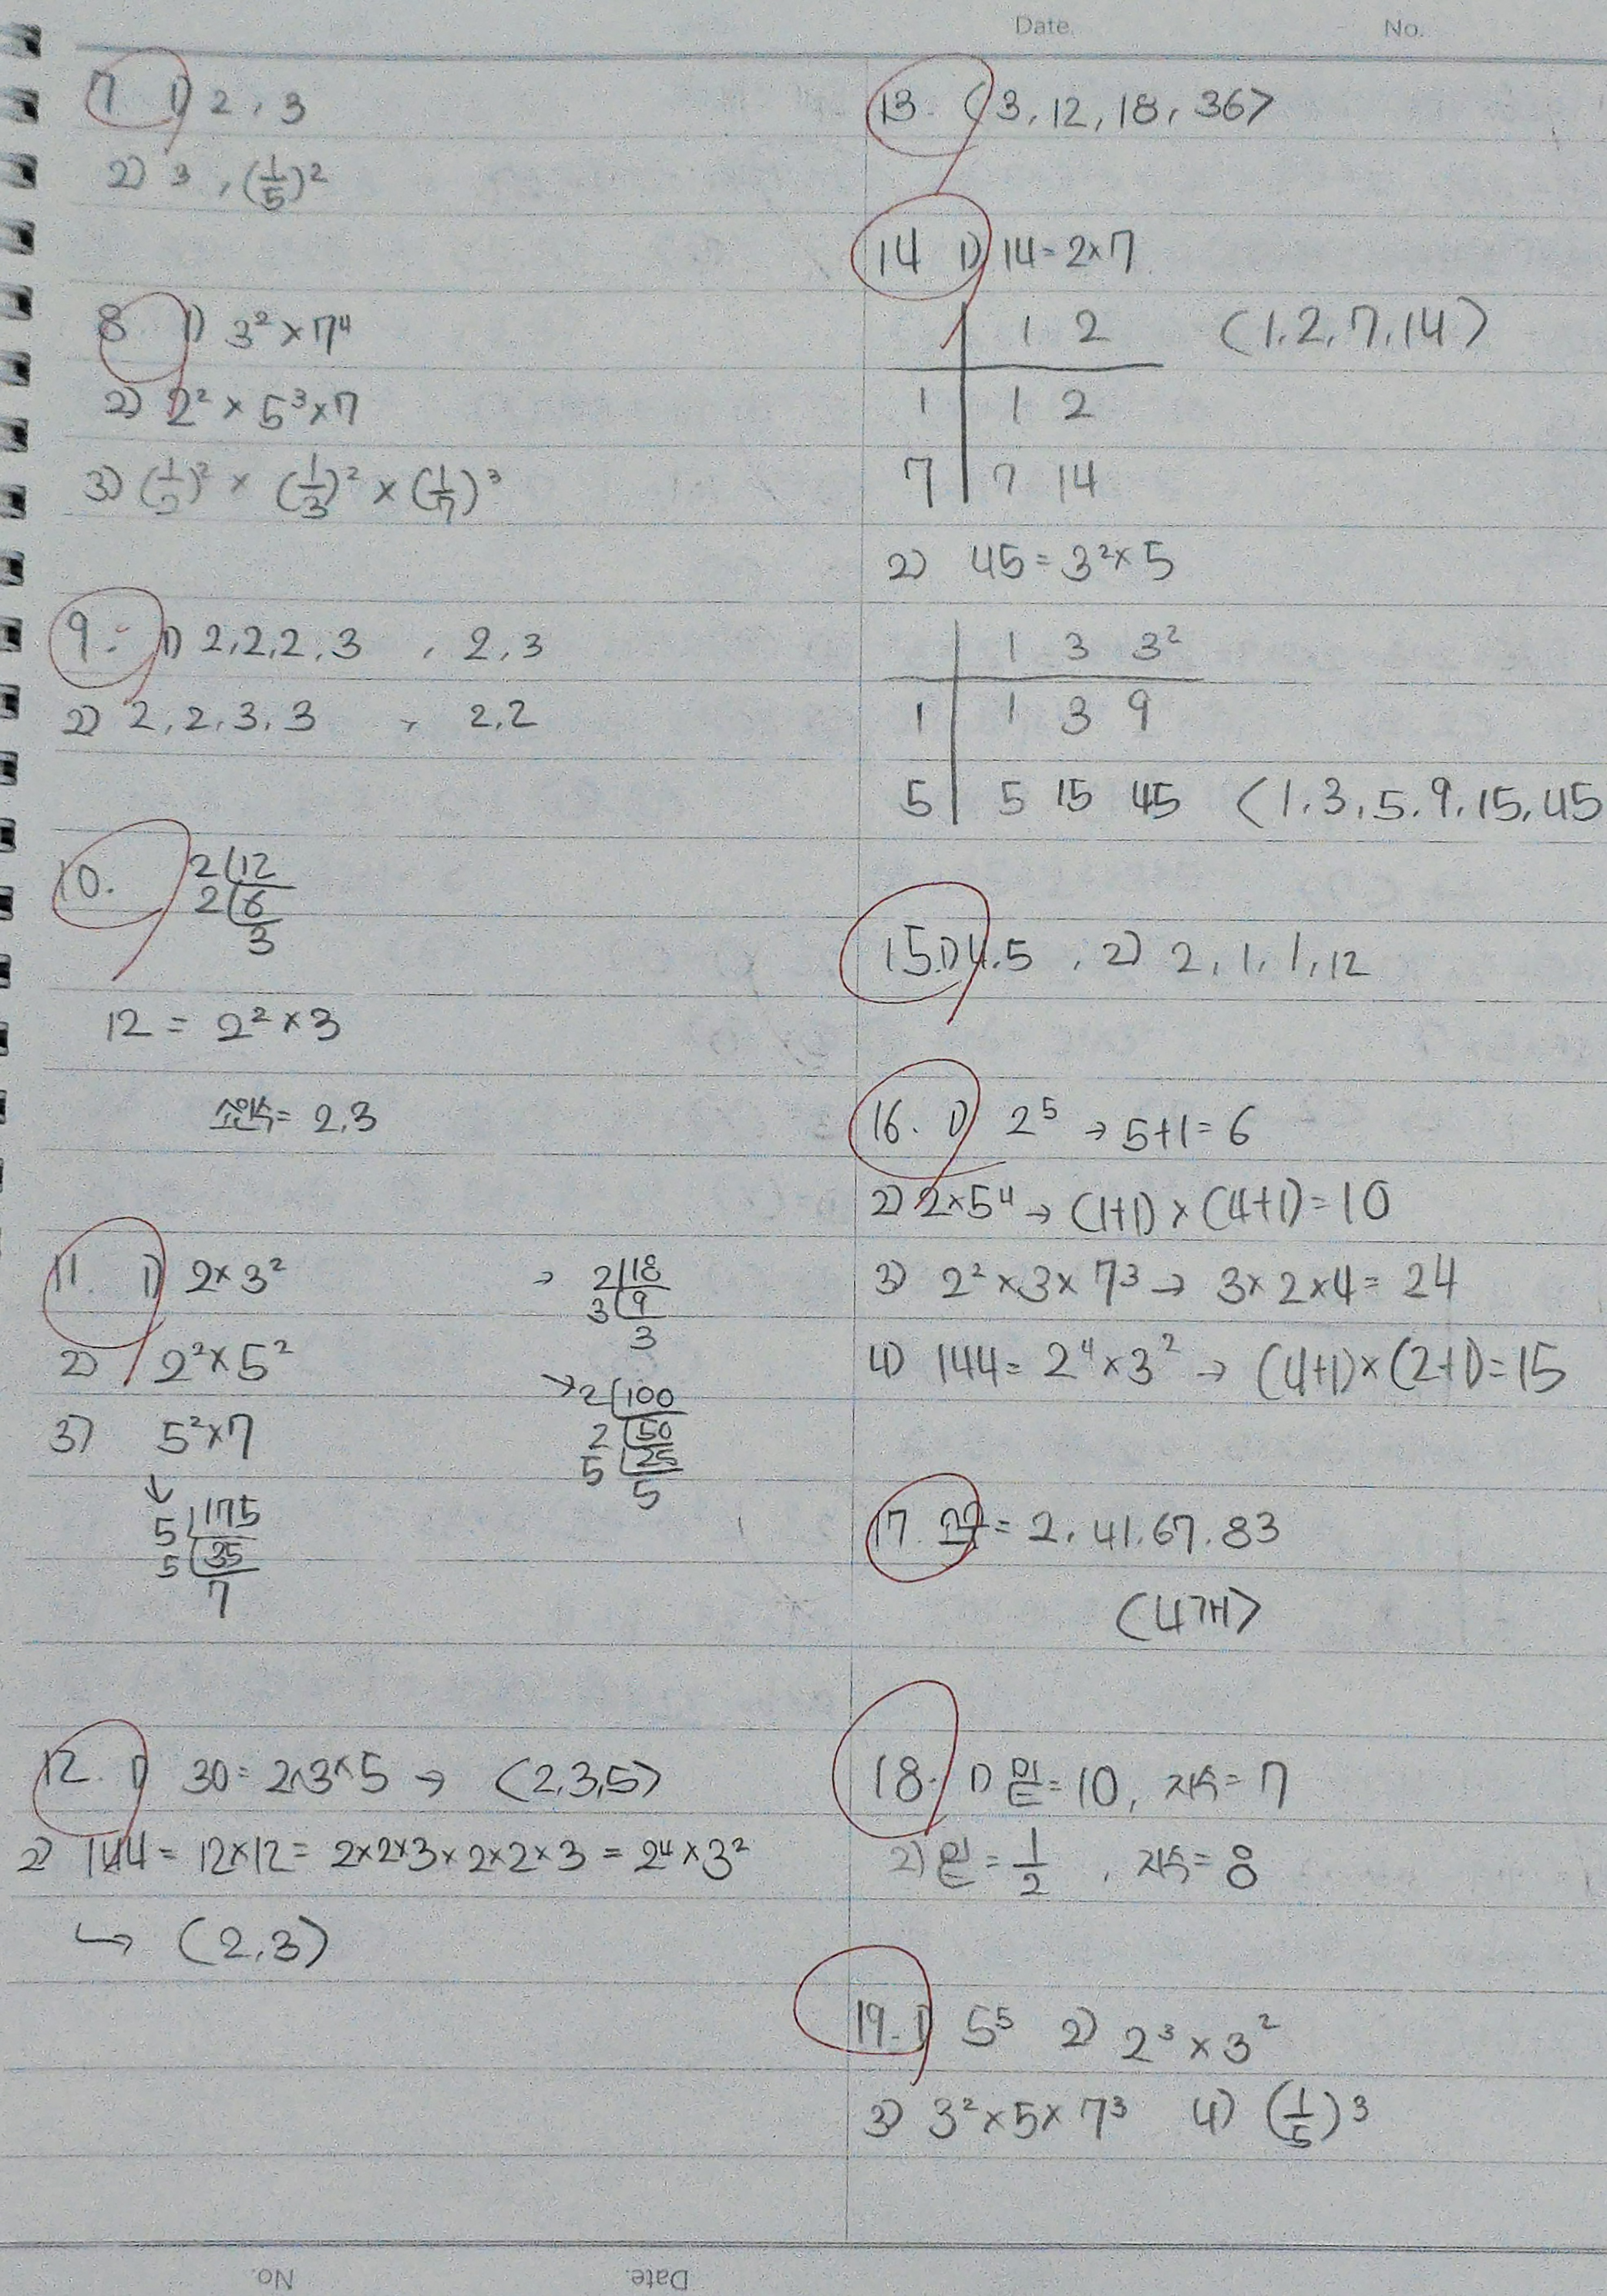 Date.
No.
7. 1) 2, 3
2) 3, (1/5)²
8. 1) 3² × 7⁴
2) 2² × 5³ × 7
3) (1/2)² × (1/3)² × (1/7)³
9. 1) 2, 2, 2, 3 , 2, 3
2) 2, 2, 3, 3 , 2, 2
10. 2 12
2 6
3
12 = 2² × 3
소인수 = 2, 3
11. 1) 2 × 3² → 2 18
3 9
3
2) 2² × 5² → 2 100
2 50
5 25
5
3) 5² × 7
↓
5 175
5 35
7
12. 1) 30 = 2×3×5 → (2, 3, 5)
2) 144 = 12×12 = 2×2×3×2×2×3 = 2⁴ × 3²
↳ (2, 3)
13. (3, 12, 18, 36)
14 1) 14 = 2×7
1 2 (1, 2, 7, 14)
1 1 2
7 7 14
2) 45 = 3² × 5
1 3 3²
1 1 3 9
5 5 15 45 (1, 3, 5, 9, 15, 45
15. 1) 4, 5 , 2) 2, 1, 1, 12
16. 1) 2⁵ → 5+1 = 6
2) 2×5⁴ → (1+1) × (4+1) = 10
3) 2² × 3 × 7³ → 3×2×4 = 24
4) 144 = 2⁴ × 3² → (4+1)×(2+1) = 15
17. = 2, 41, 67, 83
(4개)
18. 1) 밑 = 10, 지수 = 7
2) 밑 = 1/2 , 지수 = 8
19. 1) 5⁵ 2) 2³ × 3²
3) 3² × 5 × 7³ 4) (1/5)³
No.
Date.